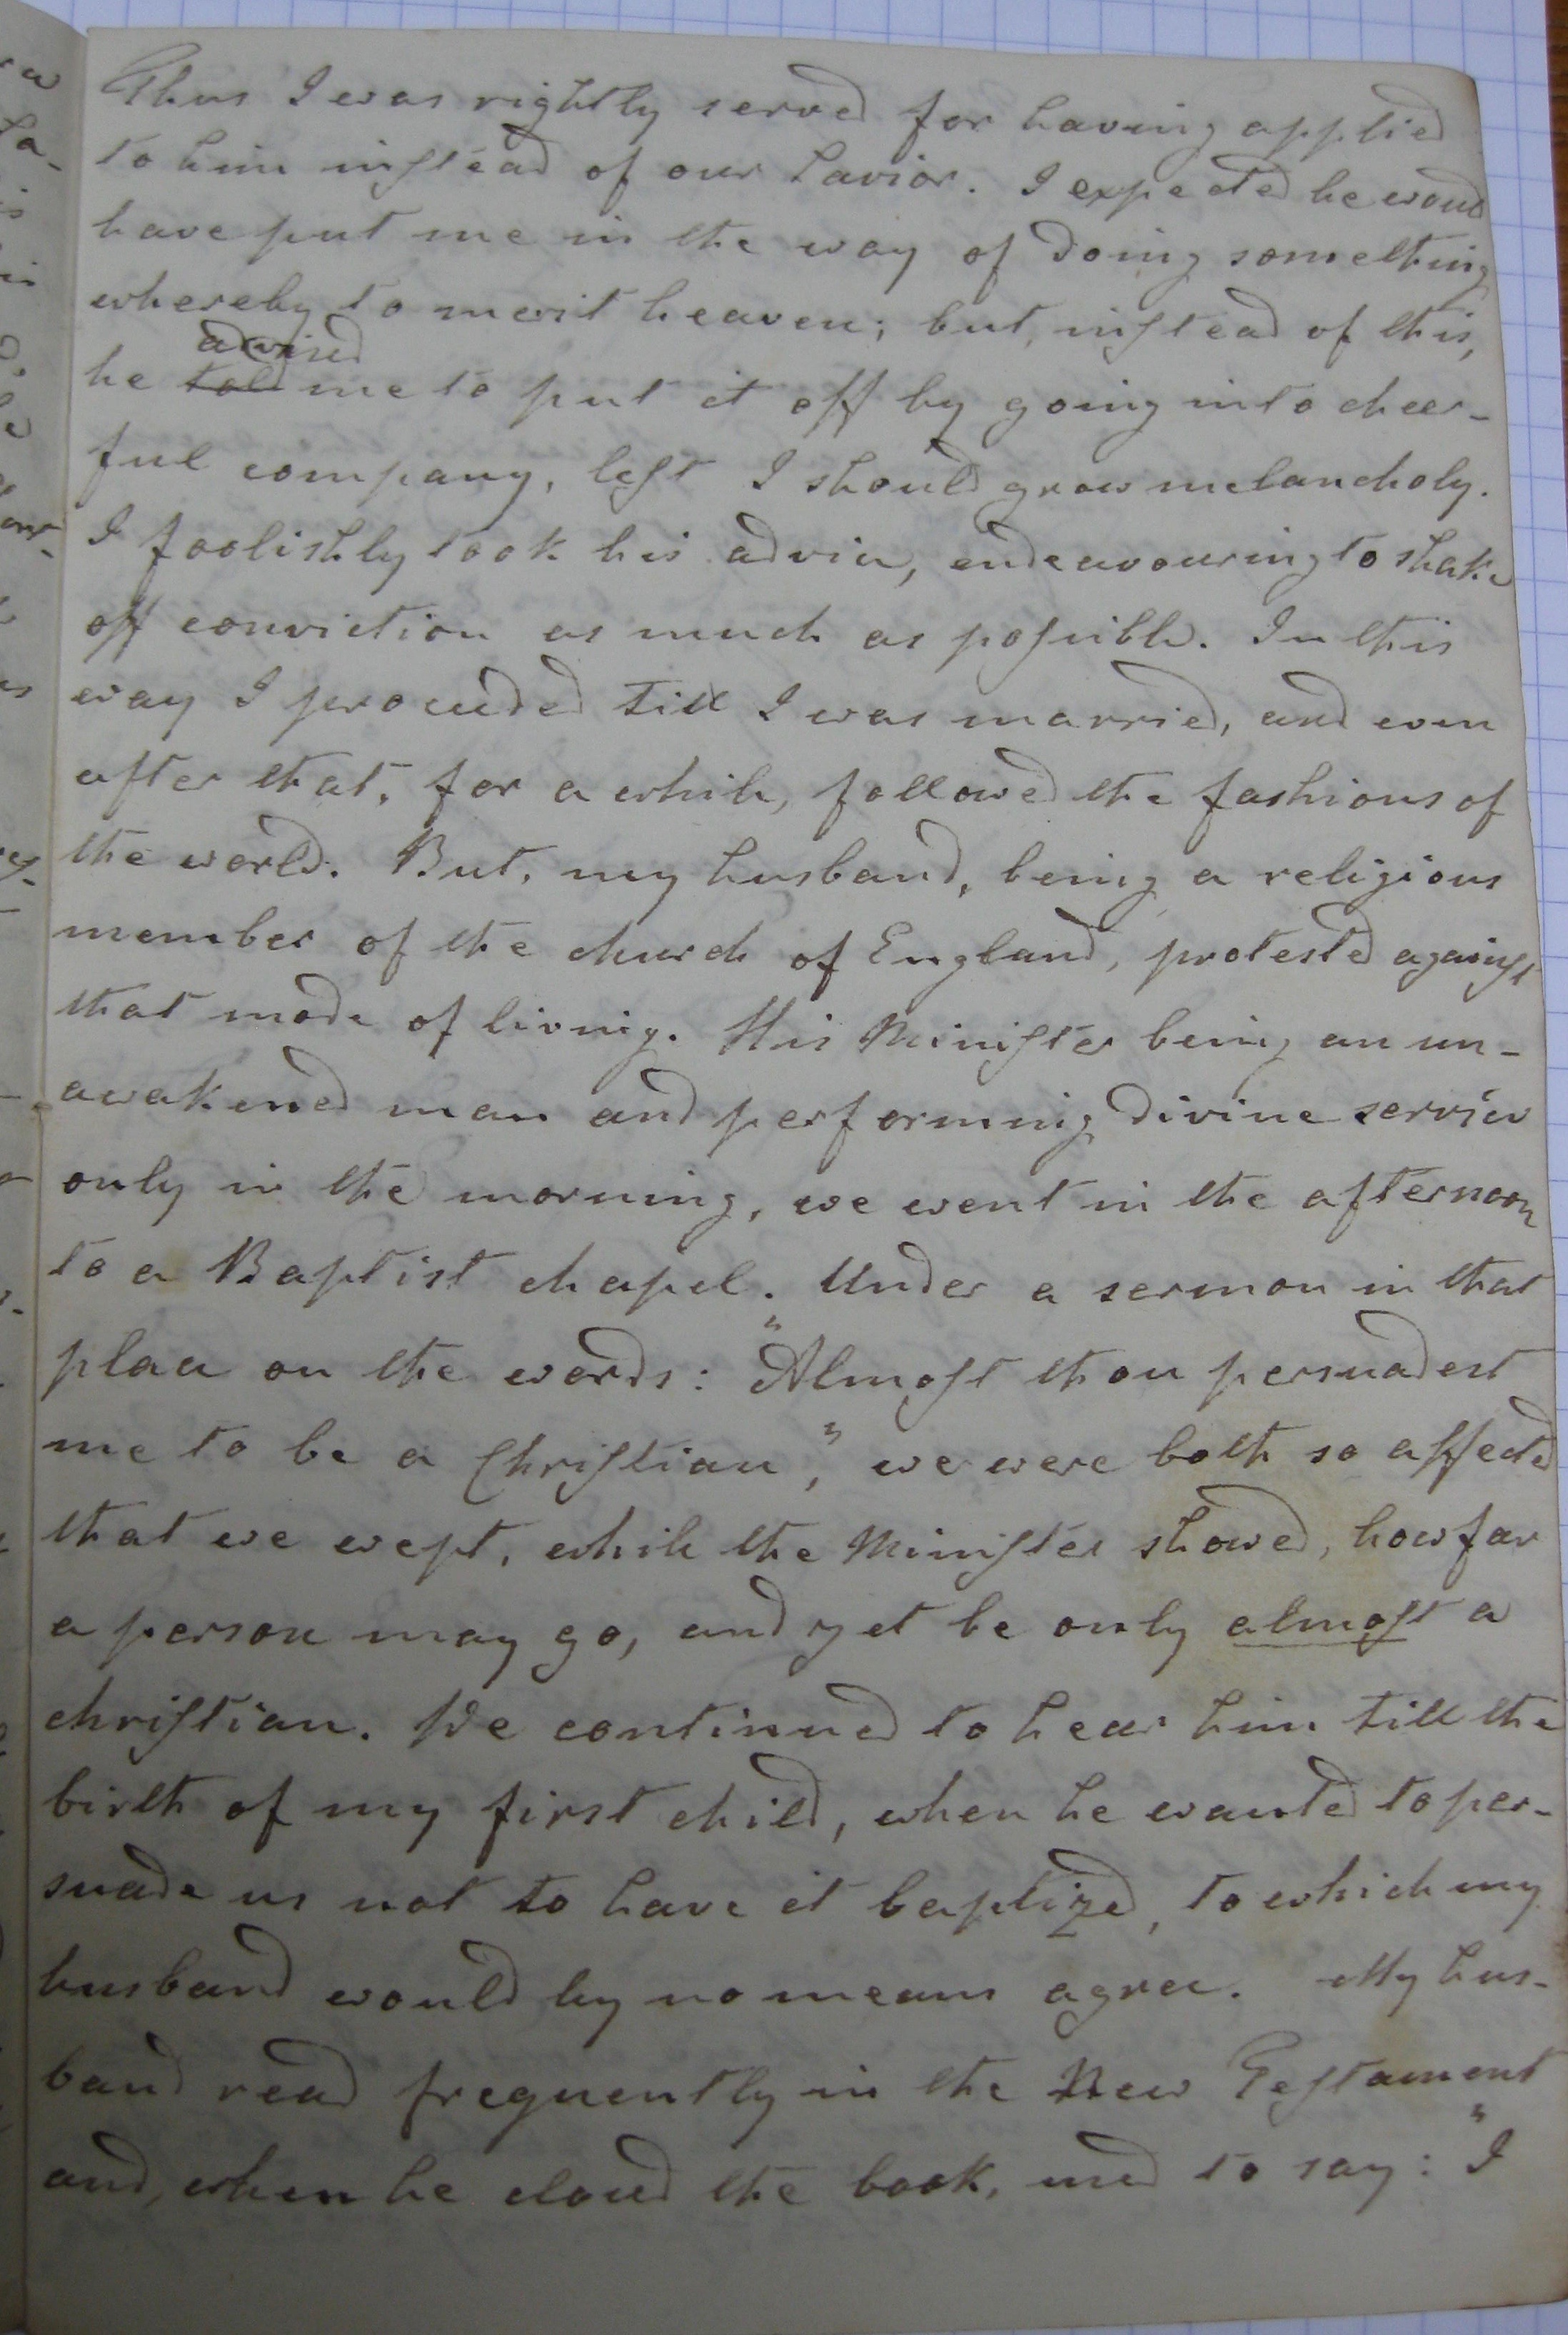 Thus I was rightly served for having applied
to him inſtead of our Savior. I expected he woud
have put me in the way of doing something
whereby to merit heaven; but, inſtead of this,
advised
he ~~told~~ me to put it off by going into cheer-
ful company, leſt I should grow melancholy.
I foolishly took his advice, endeavouring to shake
off conviction as much as poſsible. In this
way I proceeded till I was married, and even
after that, for a while, followed the fashions of
the world. But, my husband, being a religious
member of the church of England, protested againſt
that mode of living. His Miniſter being an un-
awakened man and performing divine service
only in the morning, we went in the afternoon
to a Baptist chapel. Under a sermon in that
place on the words: "Almoſt thou persuadest
me to be a Chriſtian", we were both so affected
that we wept, while the Miniſter showed, how far
a person may go, and yet be only almoſt a
chriſtian. We continued to hear him till the
birth of my first child, when he wanted to per-
suade us not to have it baptized, to which my
husband would by no means agree. My hus-
band read frequently in the New Teſtament
and, when he closed the book, used to say: "I